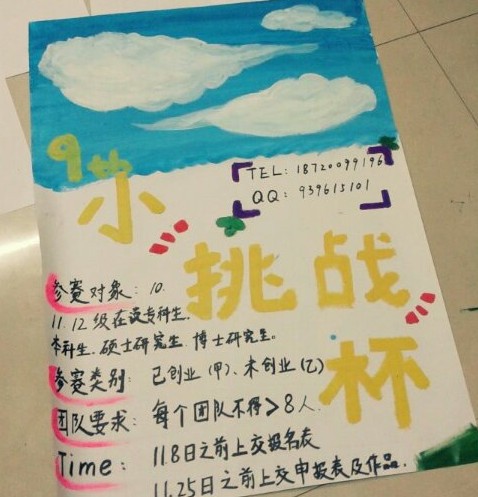 9th
TEL: 18720099196
QQ: 939615101
小
挑战
杯
参赛对象: 10.
11.12级在读专科生.
本科生.硕士研究生.博士研究生。
参赛类别: 已创业(甲)、未创业(乙)
团队要求: 每个团队不得>8人.
Time: 11.8日之前上交报名表
11.25日之前上交申报表及作品.